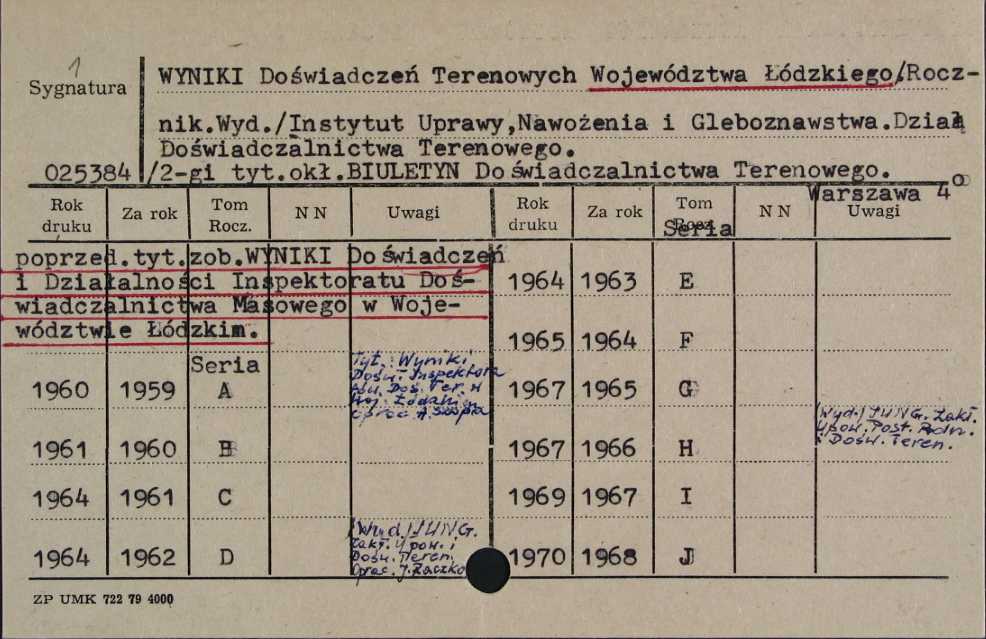 1
Sygnatura
WYNIKI Doświadczeń Terenowych Województwa Łódzkiego/Rocz-
nik.Wyd./Instytut Uprawy,Nawożenia i Gleboznawstwa.Dział
Doświadczalnictwa Terenowego.
025384 /2-gi tyt.okł.BIULETYN Doświadczalnictwa Terenowego.
Warszawa 4°
Rok druku Za rok Tom Rocz. N N Uwagi Rok druku Za rok Tom Rocz. N N Uwagi
Seria
poprzed.tyt.zob.WYNIKI Doświadczeń
i Działalności Inspektoratu Doś-
wiadczalnictwa Masowego w Woje-
wództwie Łódzkim.
Seria
1960 1959 A
Tyt. Wyniki
Dośw. Inspektora
Doś. Ter. w
Woj. Łódzkim
oprac. A.
1961 1960 B
1964 1961 C
1964 1962 D
/Wyd./IUNG.
Zakł. Upow. i
Dośw. Teren.
Oprac. J. Raczko
1964 1963 E
1965 1964 F
1967 1965 G
1967 1966 H
/Wyd./IUNG. Zakł.
Upow. Post. Roln.
i Dośw. Teren.
1969 1967 I
1970 1968 J
ZP UMK 722 79 4000